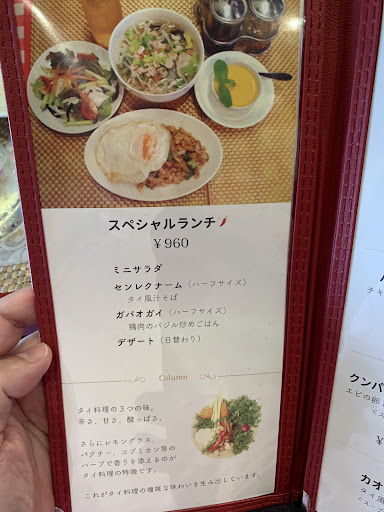 スペシャルランチ
￥960
ミニサラダ
センレクナーム（ハーフサイズ）
タイ風汁そば
ガパオガイ（ハーフサイズ）
鶏肉のバジル炒めごはん
デザート（日替わり）
Column
タイ料理の３つの味。
辛さ、甘さ、酸っぱさ。
さらにレモングラス、
パクチー、コブミカン等の
ハーブで香りを添えるのが
タイ料理の特徴です。
これがタイ料理の複雑な味わいを生み出しています。
チキ
クンパ
エビの卵
<スー
カオ
タイ風
<スープ